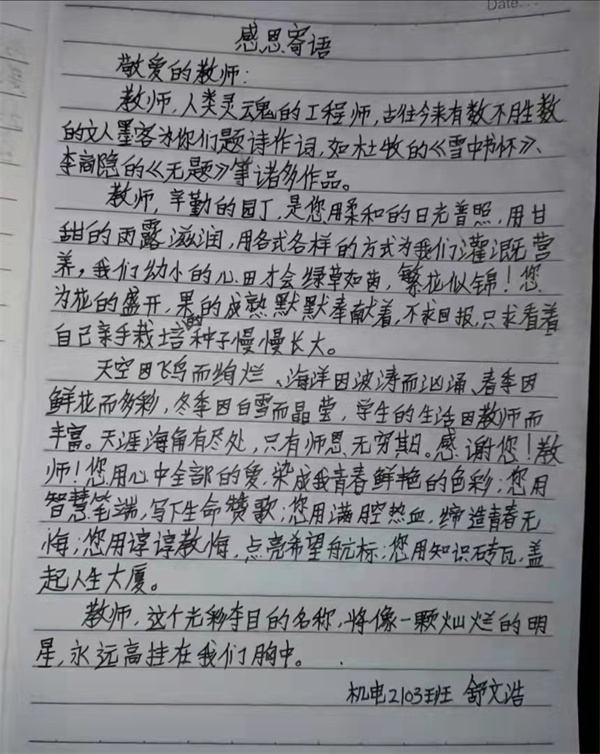 Date...
感恩寄语
敬爱的教师:
教师,人类灵魂的工程师,古往今来有数不胜数
的文人墨客为你们题诗作词,如杜牧的《雪中书怀》、
李商隐的《无题》等诸多作品。
教师,辛勤的园丁,是您用柔和的日光普照,用甘
甜的雨露滋润,用各式各样的方式为我们灌溉营
养,我们幼小的心田才会绿草如茵,繁花似锦!您
为花的盛开,果的成熟默默奉献着,不求回报,只求看着
自己亲手栽培的种子慢慢长大。
天空因飞鸟而绚烂、海洋因波涛而汹涌、春季因
鲜花而多彩,冬季因白雪而晶莹,学生的生活因教师而
丰富。天涯海角有尽处,只有师恩无穷期。感谢您!教
师!您用心中全部的爱,染成我青春鲜艳的色彩;您用
智慧笔端,写下生命赞歌;您用满腔热血,缔造青春无
悔;您用谆谆教悔,点亮希望航标;您用知识砖瓦,盖
起人生大厦。
教师,这个光彩夺目的名称,将像一颗灿烂的明
星,永远高挂在我们胸中。
机电2103班 舒文浩